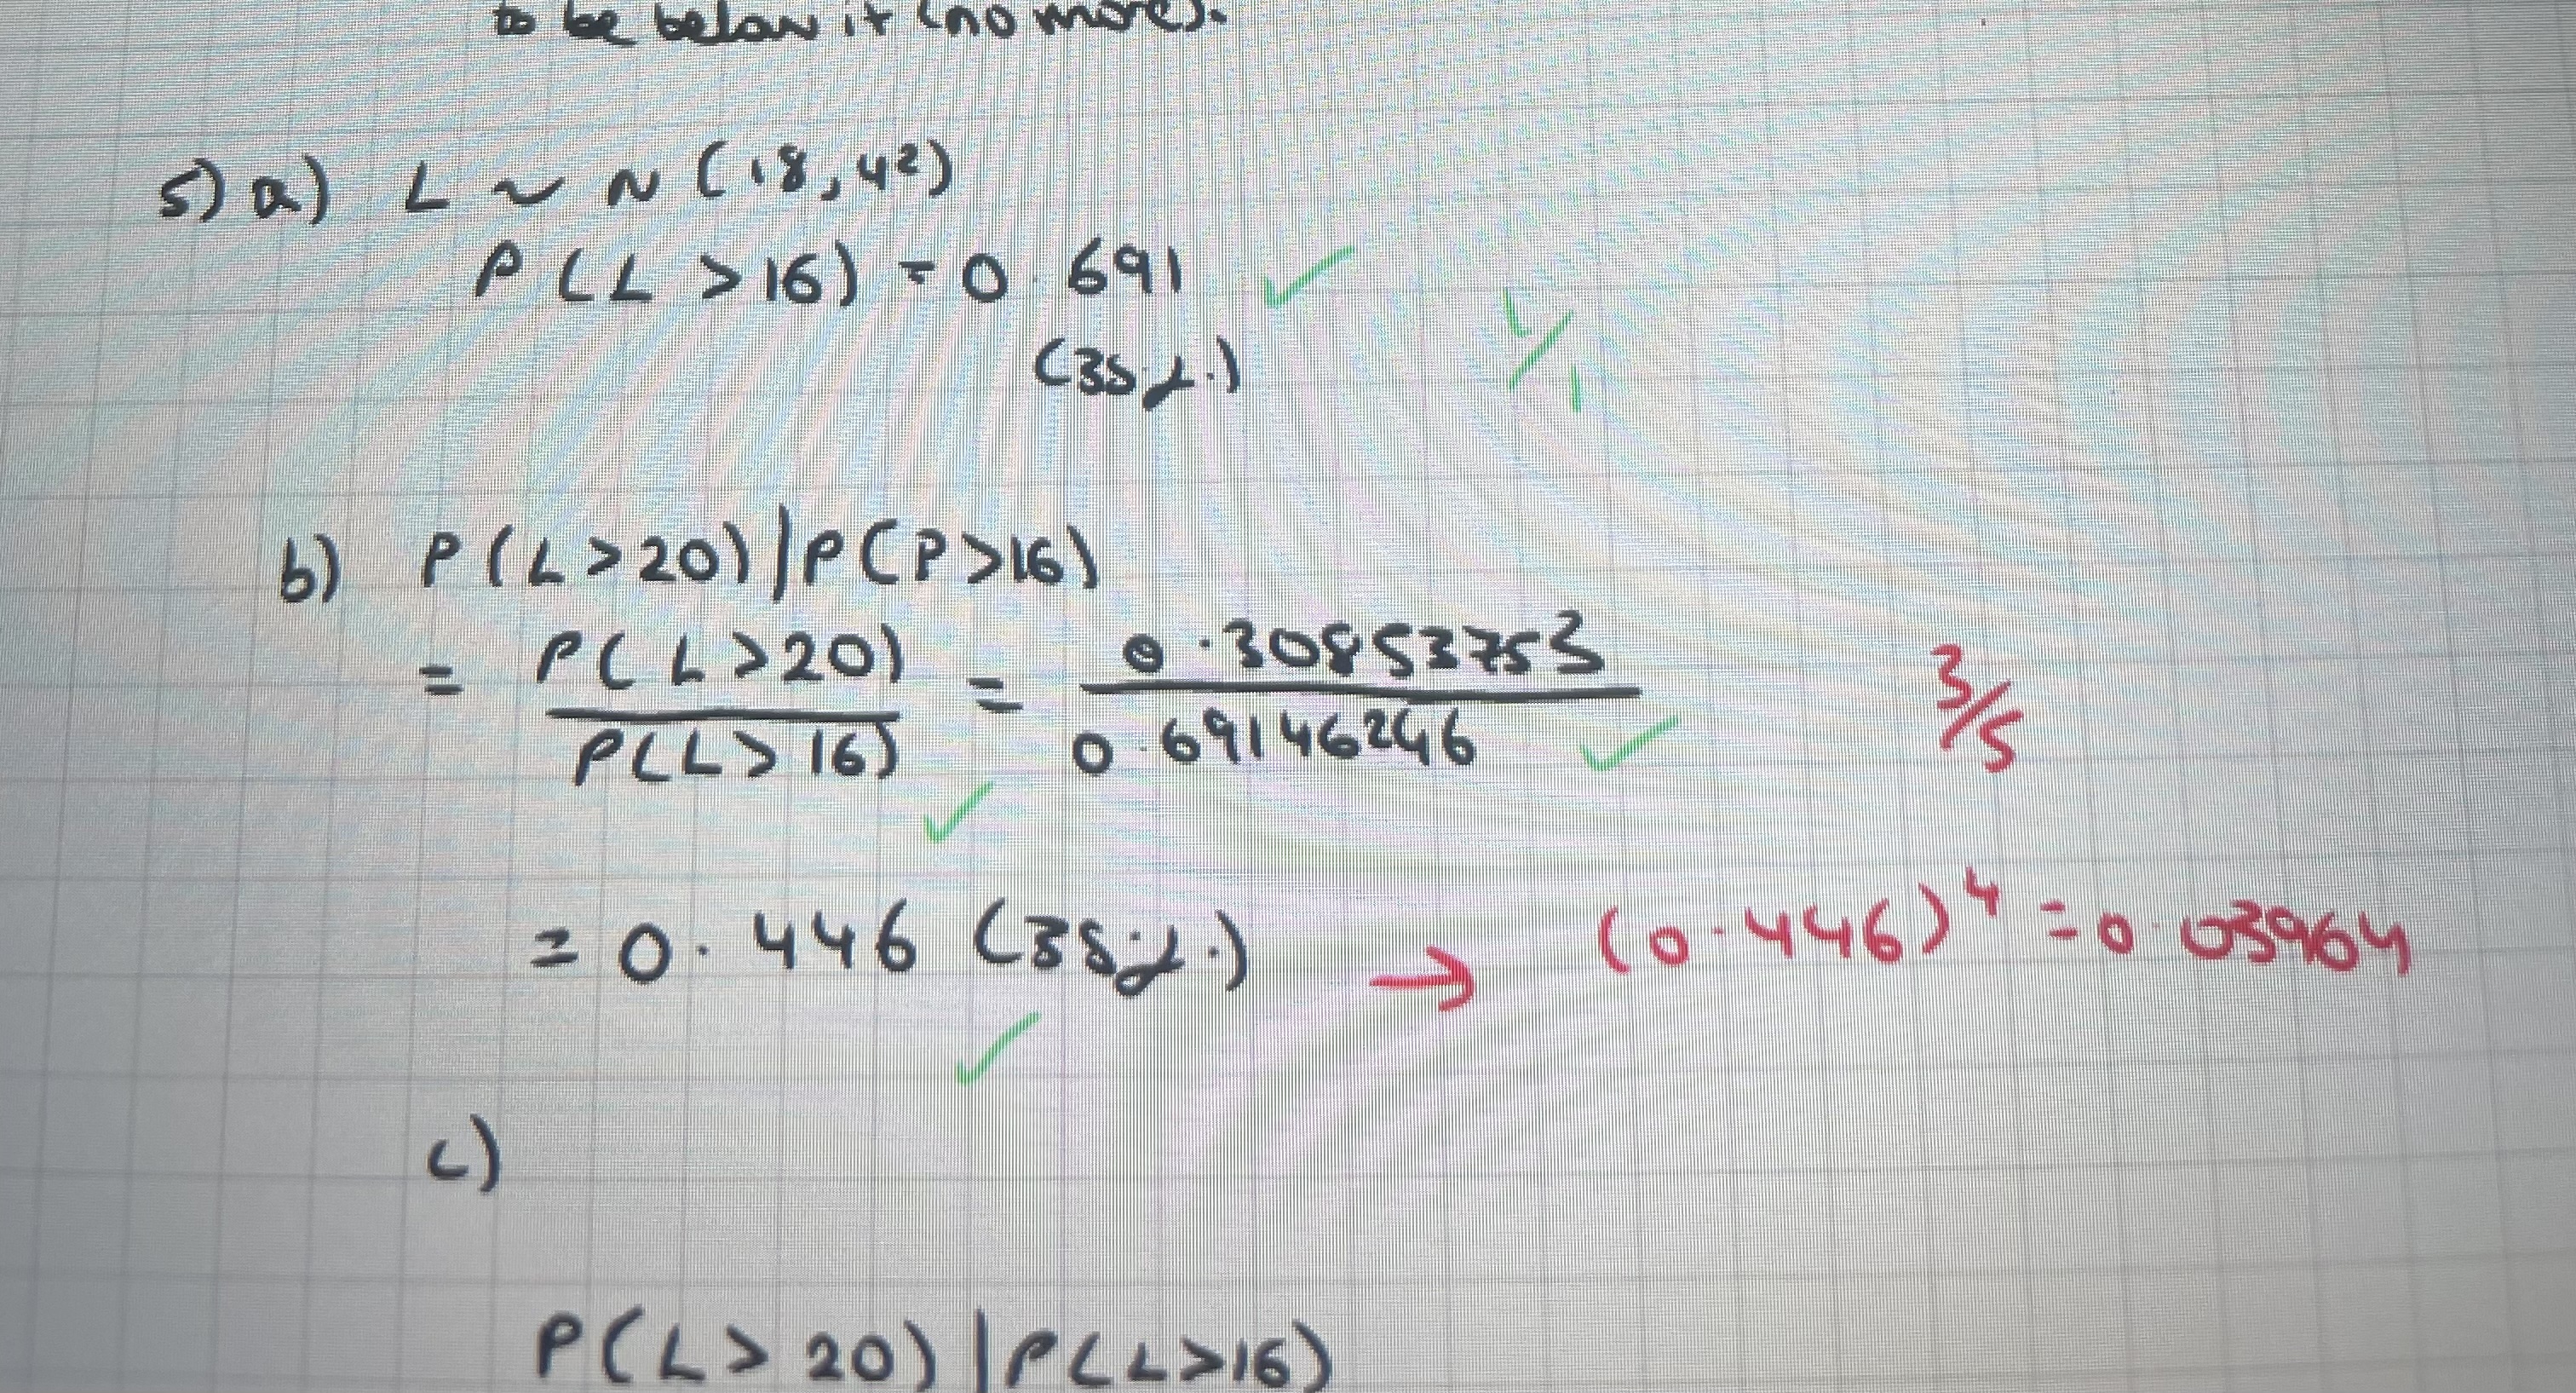 to be below it (no more).
5) a) L ~ N (18, 4²)
P(L > 16) = 0.691
(3s.f.)
1/1
b) P(L > 20) | P(P > 16)
= P(L > 20) / P(L > 16) = 0.30853753 / 0.69146246
3/5
= 0.446 (3s.f.) → (0.446)⁴ = 0.03964
c)
P(L > 20) | P(L > 16)